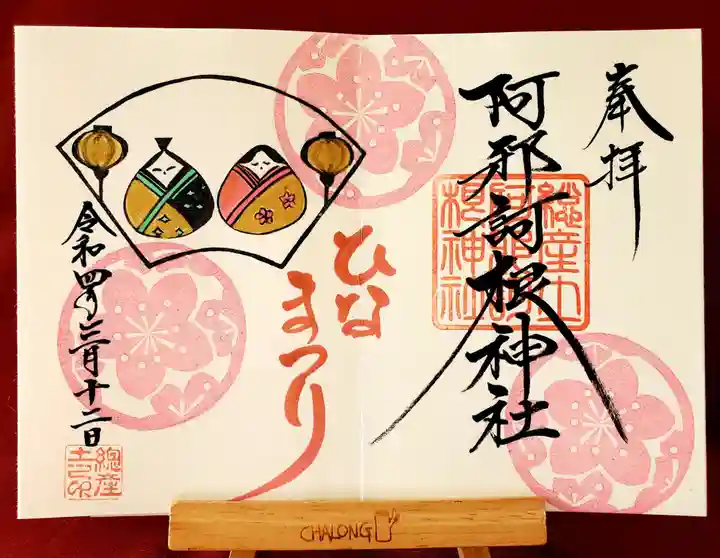 奉拝
阿邪訶根神社
総産土
阿邪訶
根神社
ひな
まつり
令和四年三月十二日
總産
土印
CHALONG